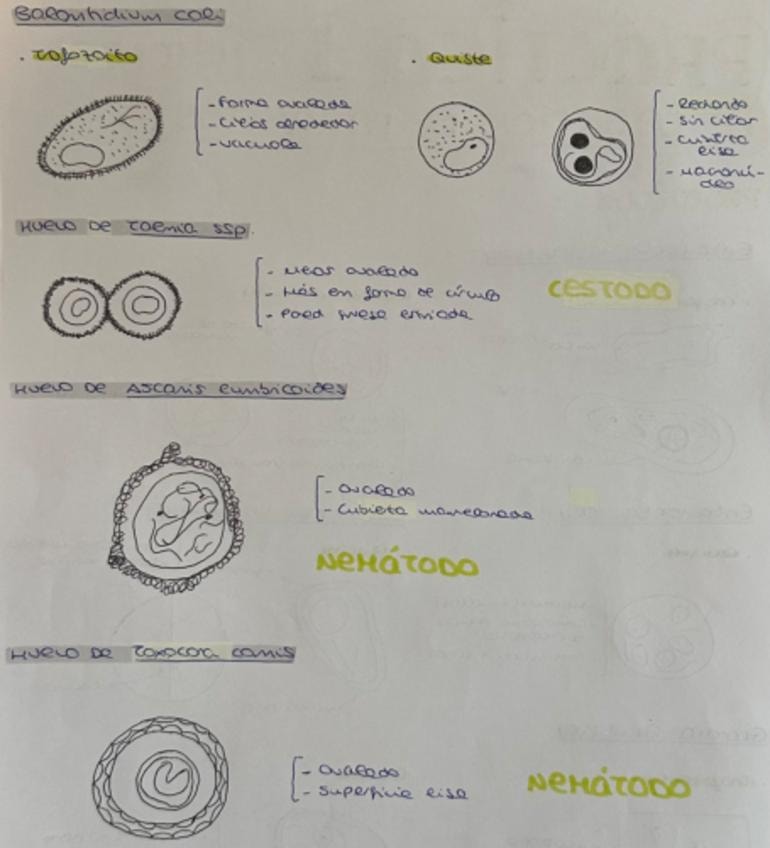 Balantidium coli
. Trofozoito
- Forma ovalada
- Cilios alrededor
- Vacuola
. Quiste
- Redondo
- sin cilios
- Cubierta lisa
- Macronú-
cleo
Huevo de Taenia ssp.
- Menos ovalado
- Más en forma de círculo
- Pared gruesa estriada
CESTODO
Huevo de Ascaris lumbricoides
- Ovalado
- Cubierta mamelonada
NEMÁTODO
Huevo de Toxocara canis
- Ovalado
- Superficie lisa
NEMÁTODO